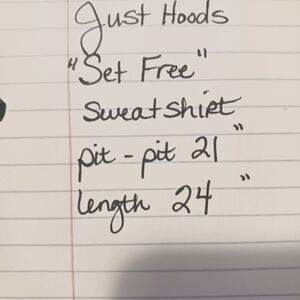 Just Hoods
"Set Free"
Sweatshirt
pit - pit 21"
length 24"